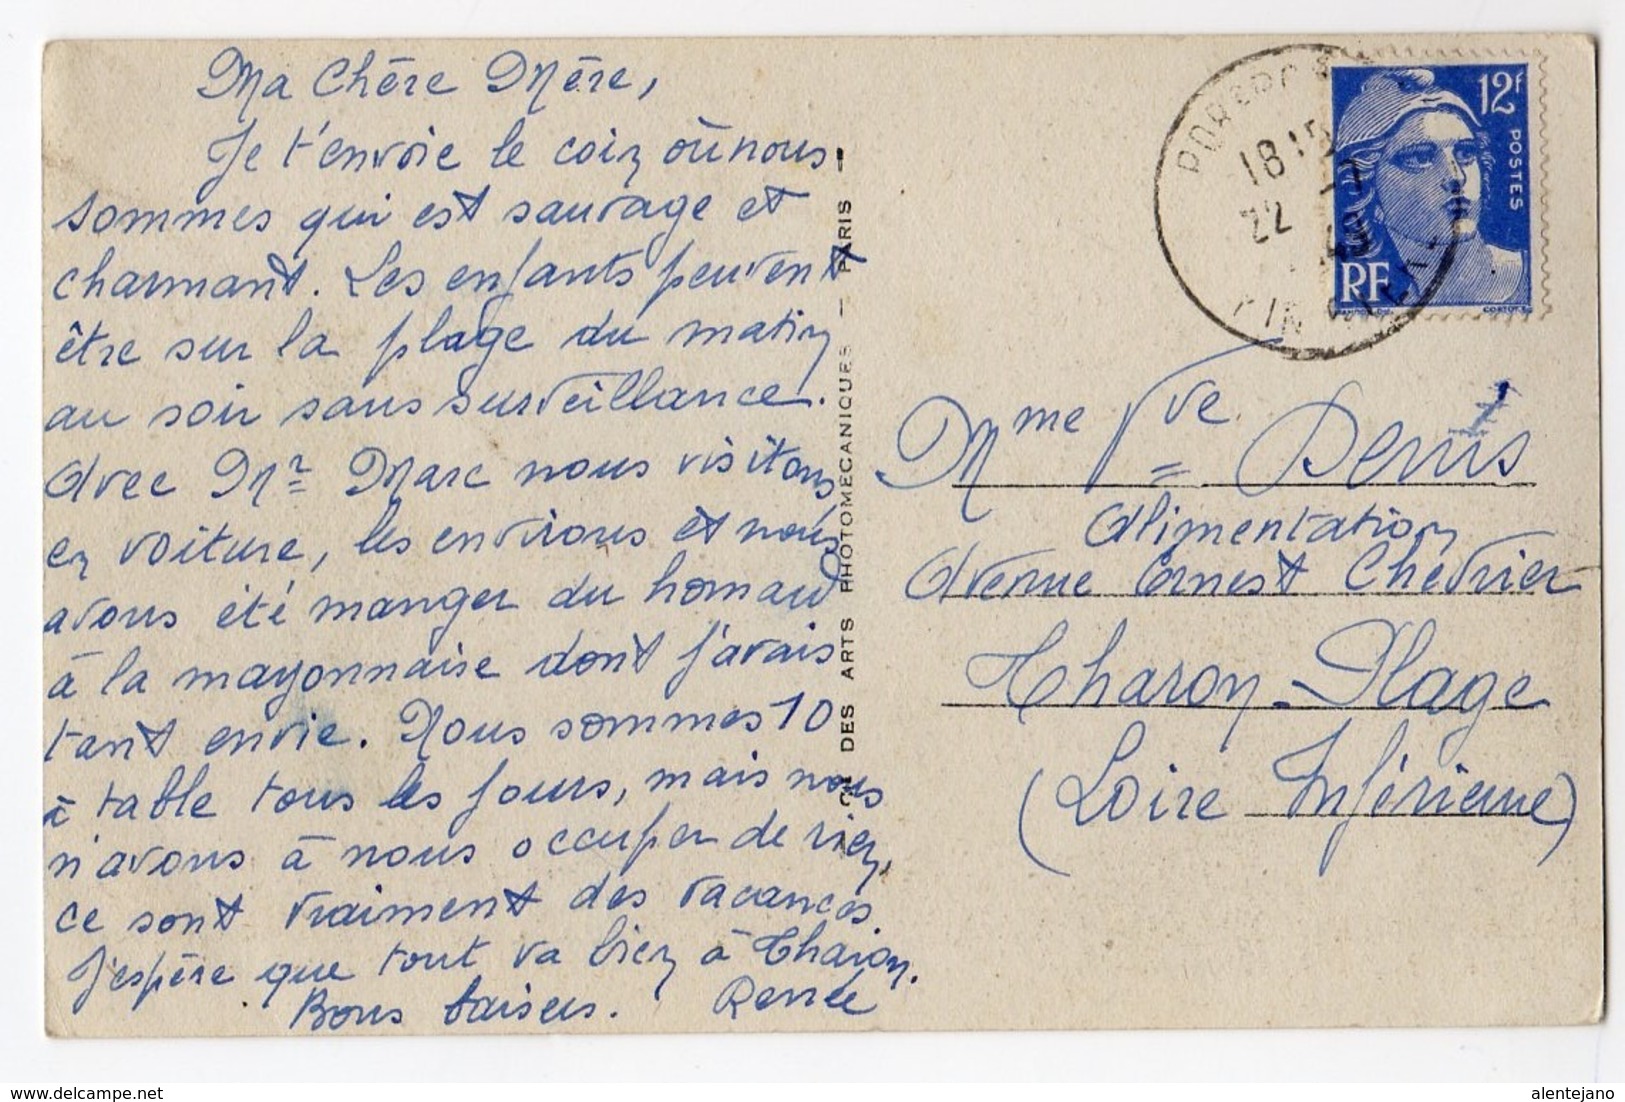 Ma Chère Mère,
Je t'envoie le coin où nous
sommes qui est sauvage et
charmant. Les enfants peuvent
être sur la plage du matin
au soir sans surveillance.
Avec Mr Marc nous visitons
en voiture, les environs et nous
avons été manger du homard
à la mayonnaise dont j'avais
tant envie. Nous sommes 10
à table tous les jours, mais nous
n'avons à nous occuper de rien,
ce sont vraiment des vacances.
J'espère que tout va bien à Tharon.
Bons baisers. Renée
DES ARTS PHOTOMECANIQUES — PARIS —
18 15
22 -7
49
12F
POSTES
RF
Mme Vve Denis
Alimentation
Avenue Ernest Chevrier
Tharon-Plage
(Loire Inférieure)
delcampe.net
alentejano